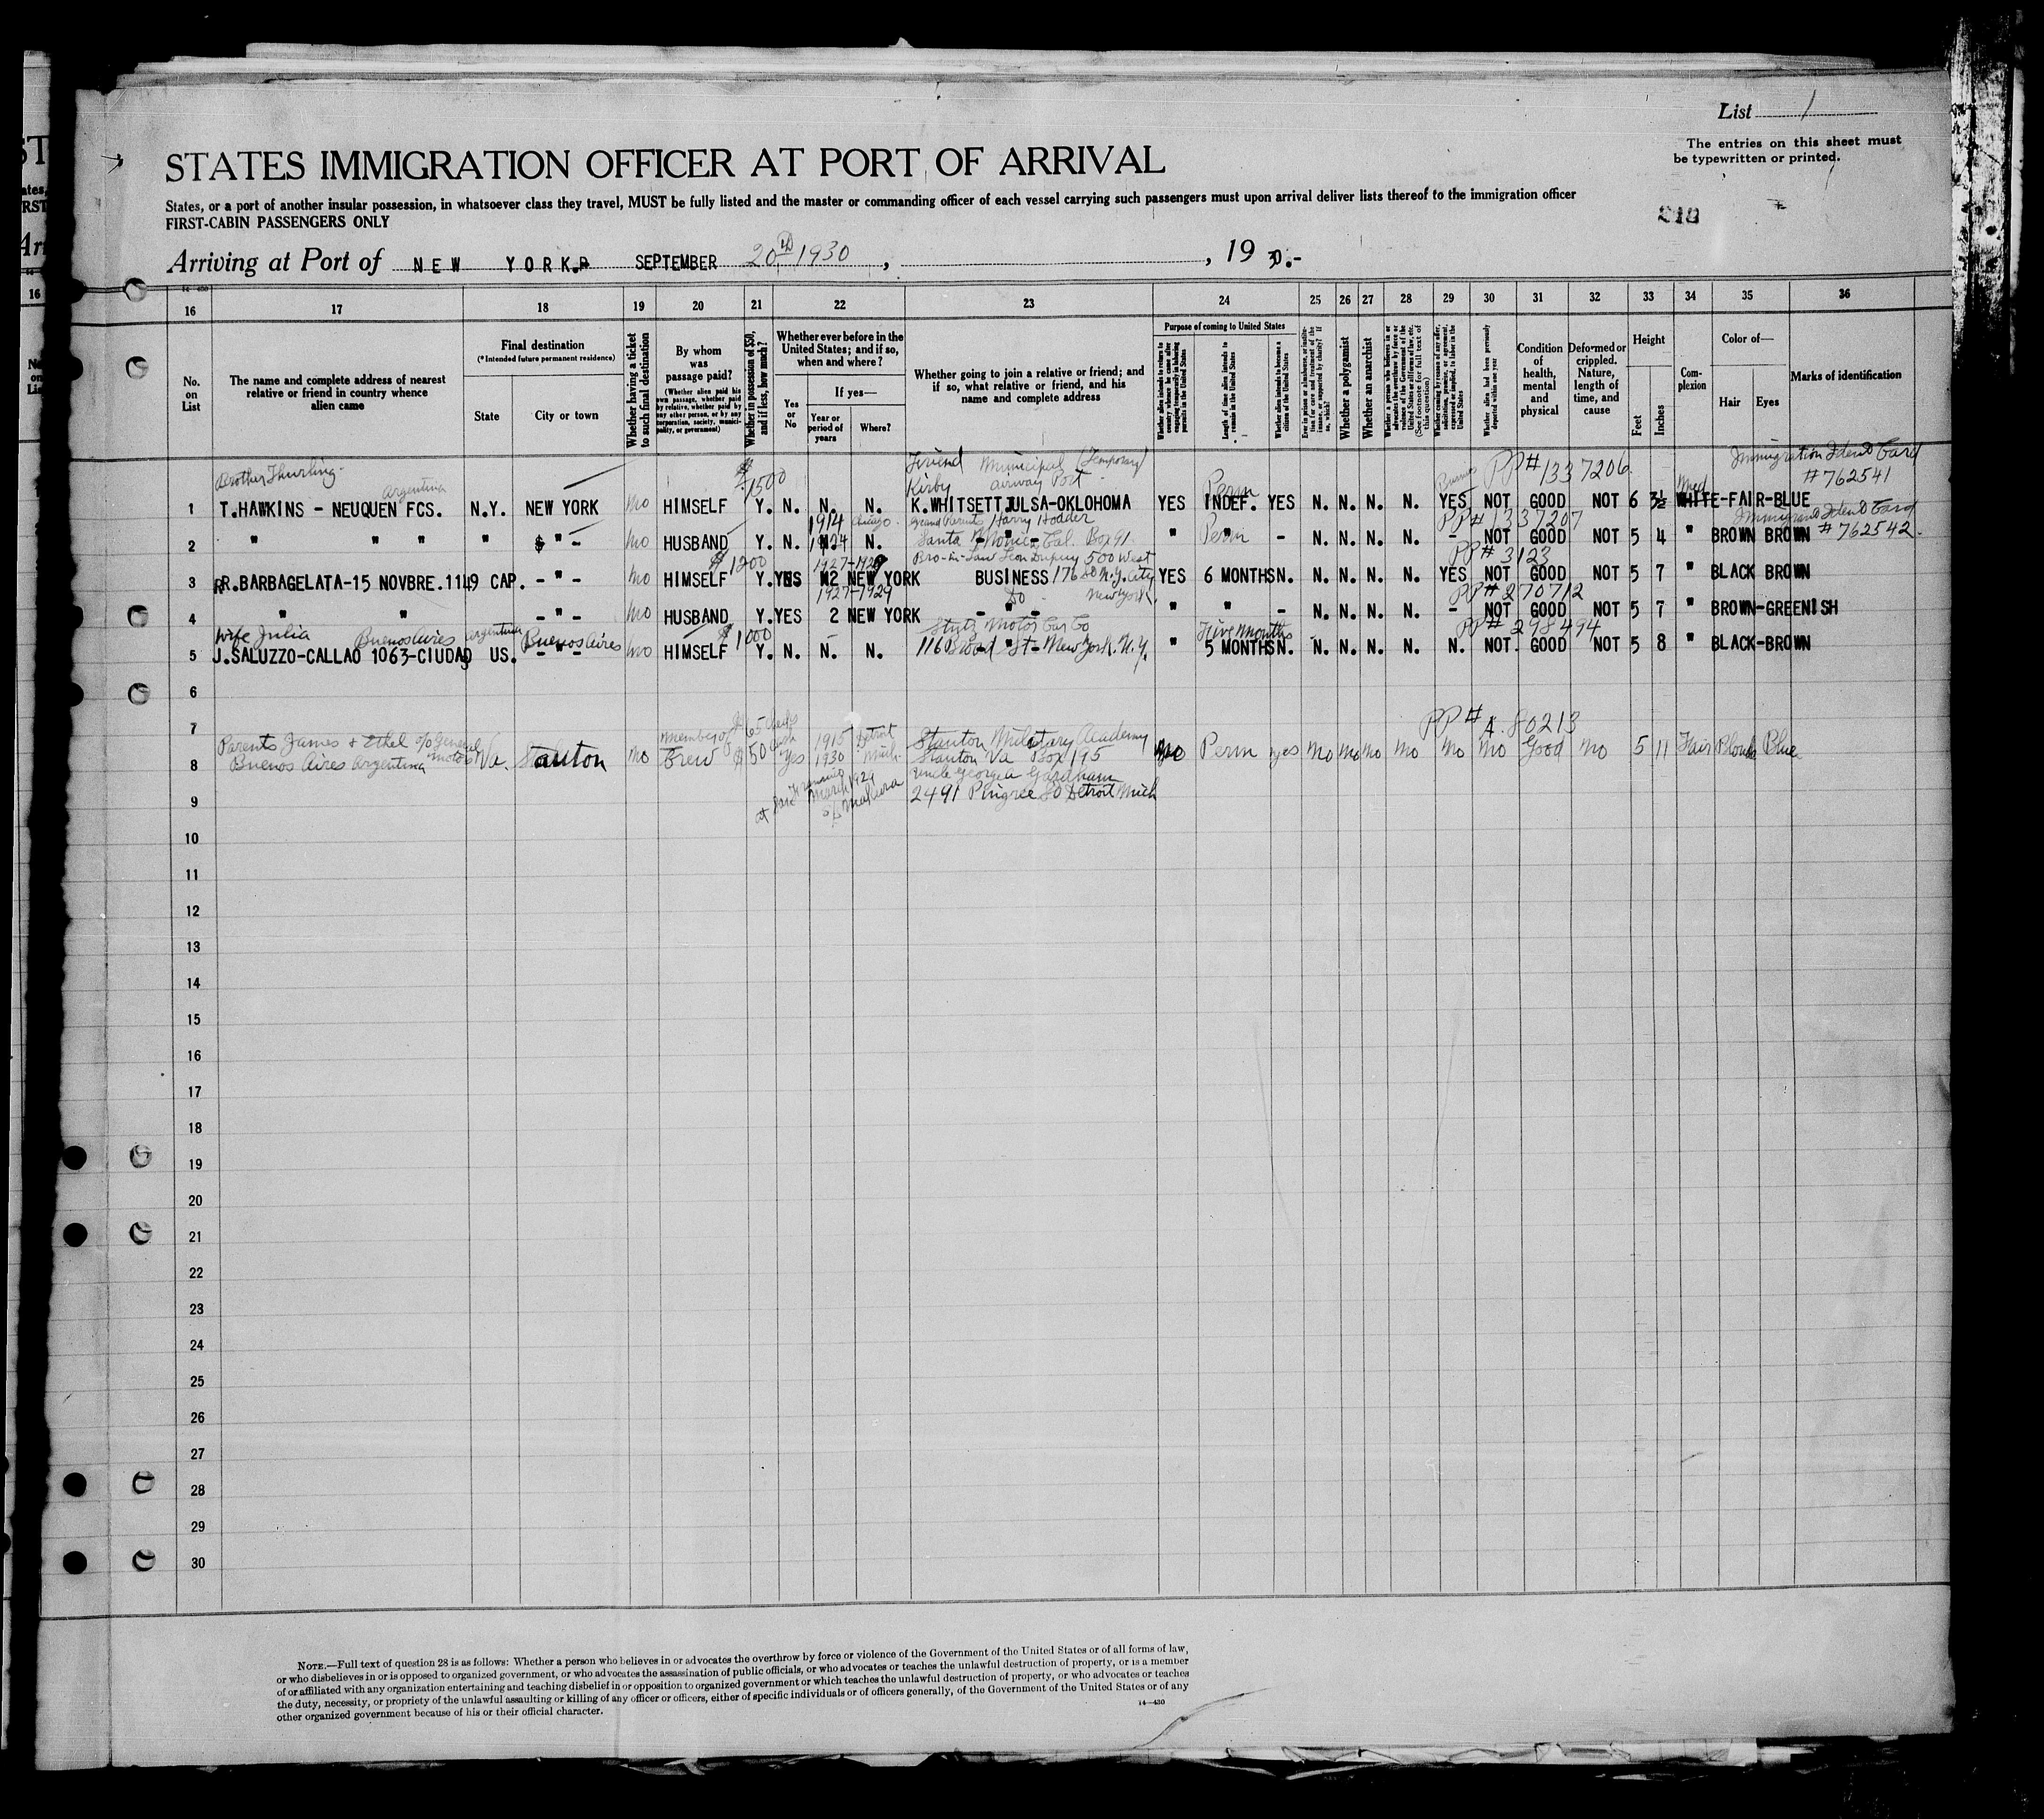 List 1
The entries on this sheet must
be typewritten or printed.
STATES IMMIGRATION OFFICER AT PORT OF ARRIVAL
States, or a port of another insular possession, in whatsoever class they travel, MUST be fully listed and the master or commanding officer of each vessel carrying such passengers must upon arrival deliver lists thereof to the immigration officer
FIRST-CABIN PASSENGERS ONLY
Arriving at Port of NEW YORK. SEPTEMBER 20th 1930, 19 30.-
16 17 18 19 20 21 22 23 24 25 26 27 28 29 30 31 32 33 34 35 36
No. on List
The name and complete address of nearest relative or friend in country whence alien came
Final destination
(*Intended future permanent residence)
State
City or town
Whether having a ticket to such final destination
By whom was passage paid?
(Whether alien paid his own passage, whether paid by relative, whether paid by any other person, or by any corporation, society, municipality, or government)
Whether in possession of $50, and if less, how much?
Whether ever before in the United States; and if so, when and where?
Yes or No
If yes—
Year or period of years
Where?
Whether going to join a relative or friend; and if so, what relative or friend, and his name and complete address
Purpose of coming to United States
Whether alien intends to return to country whence he came after engaging temporarily in laboring pursuits in the United States
Length of time alien intends to remain in the United States
Whether alien intends to become a citizen of the United States
Ever in prison or almshouse, or institution for care and treatment of the insane, or supported by charity? If so, which?
Whether a polygamist
Whether an anarchist
Whether a person who believes in or advocates the overthrow by force or violence of the Government of the United States or all forms of law, etc. (See footnote for full text of this question)
Whether coming by reason of any offer, solicitation, promise, or agreement, expressed or implied, to labor in the United States
Whether alien had been previously deported within one year
Condition of health, mental and physical
Deformed or crippled. Nature, length of time, and cause
Height
Feet
Inches
Complexion
Color of—
Hair
Eyes
Marks of identification
Brother Thurling Argentina $1500 Friend Municipal (Temporary) Kirby airway Port Perm Business PP# 1337206 Med Immigration Ident Card # 762541
1 T.HAWKINS - NEUQUEN FCS. N.Y. NEW YORK No HIMSELF Y. N. N. N. K.WHITSETT TULSA-OKLOHOMA YES INDEF. YES N. N. N. N. YES NOT GOOD NOT 6 3½ WHITE-FAIR-BLUE
1914 Chicago Grand Parents Harry Hodder PP# 1337207 Immigrant Ident Card # 762542.
2 " " " " " - No HUSBAND Y. N. 1924 N. Santa Monica Cal. Box 91 " Perm - N. N. N. N. - NOT GOOD NOT 5 4 " BROWN BROWN
$1200 1927-1929 Bro-in-Law Leon Dupuy 500 West 176 St N.Y. City PP# 3123
3 R.BARBAGELATA-15 NOVBRE.1149 CAP. - " - No HIMSELF Y. YES 2 NEW YORK BUSINESS YES 6 MONTHS N. N. N. N. N. YES NOT GOOD NOT 5 7 " BLACK BROWN
1927-1929 Do New York. PP# 270712
4 " " - " - No HUSBAND Y. YES 2 NEW YORK - " - " " - N. N. N. N. - NOT GOOD NOT 5 7 " BROWN-GREENISH
wife Julia Buenos Aires Argentina Buenos Aires $1000 Stutz Motor Car Co Five Months PP# 298494
5 J.SALUZZO-CALLAO 1063-CIUDAD US. - " - No HIMSELF Y. N. N. N. 116 Broad St - New York. N.Y. " 5 MONTHS N. N. N. N. N. N. NOT. GOOD NOT 5 8 " BLACK-BROWN
6
7
Member of $65 checks cash 1915 Detroit Stanton Military Academy PP# A.80213
8 Parents James & Ethel c/o General Motors Buenos Aires Argentina Va. Stanton No Crew $50 Yes 1930 Mich Stanton Va Box 195 No Perm yes No No No No No No Good No 5 11 Fair Blond Blue
at San Francisco March 1929 S/S Makura Uncle George A Gardham
9 2491 Pingree So Detroit Mich
10
11
12
13
14
15
16
17
18
19
20
21
22
23
24
25
26
27
28
29
30
NOTE.—Full text of question 28 is as follows: Whether a person who believes in or advocates the overthrow by force or violence of the Government of the United States or of all forms of law,
or who disbelieves in or is opposed to organized government, or who advocates the assassination of public officials, or who advocates or teaches the unlawful destruction of property, or is a member
of or affiliated with any organization entertaining and teaching disbelief in or opposition to organized government or which teaches the unlawful destruction of property, or who advocates or teaches
the duty, necessity, or propriety of the unlawful assaulting or killing of any officer or officers, either of specific individuals or of officers generally, of the Government of the United States or of any
other organized government because of his or their official character.
14—430